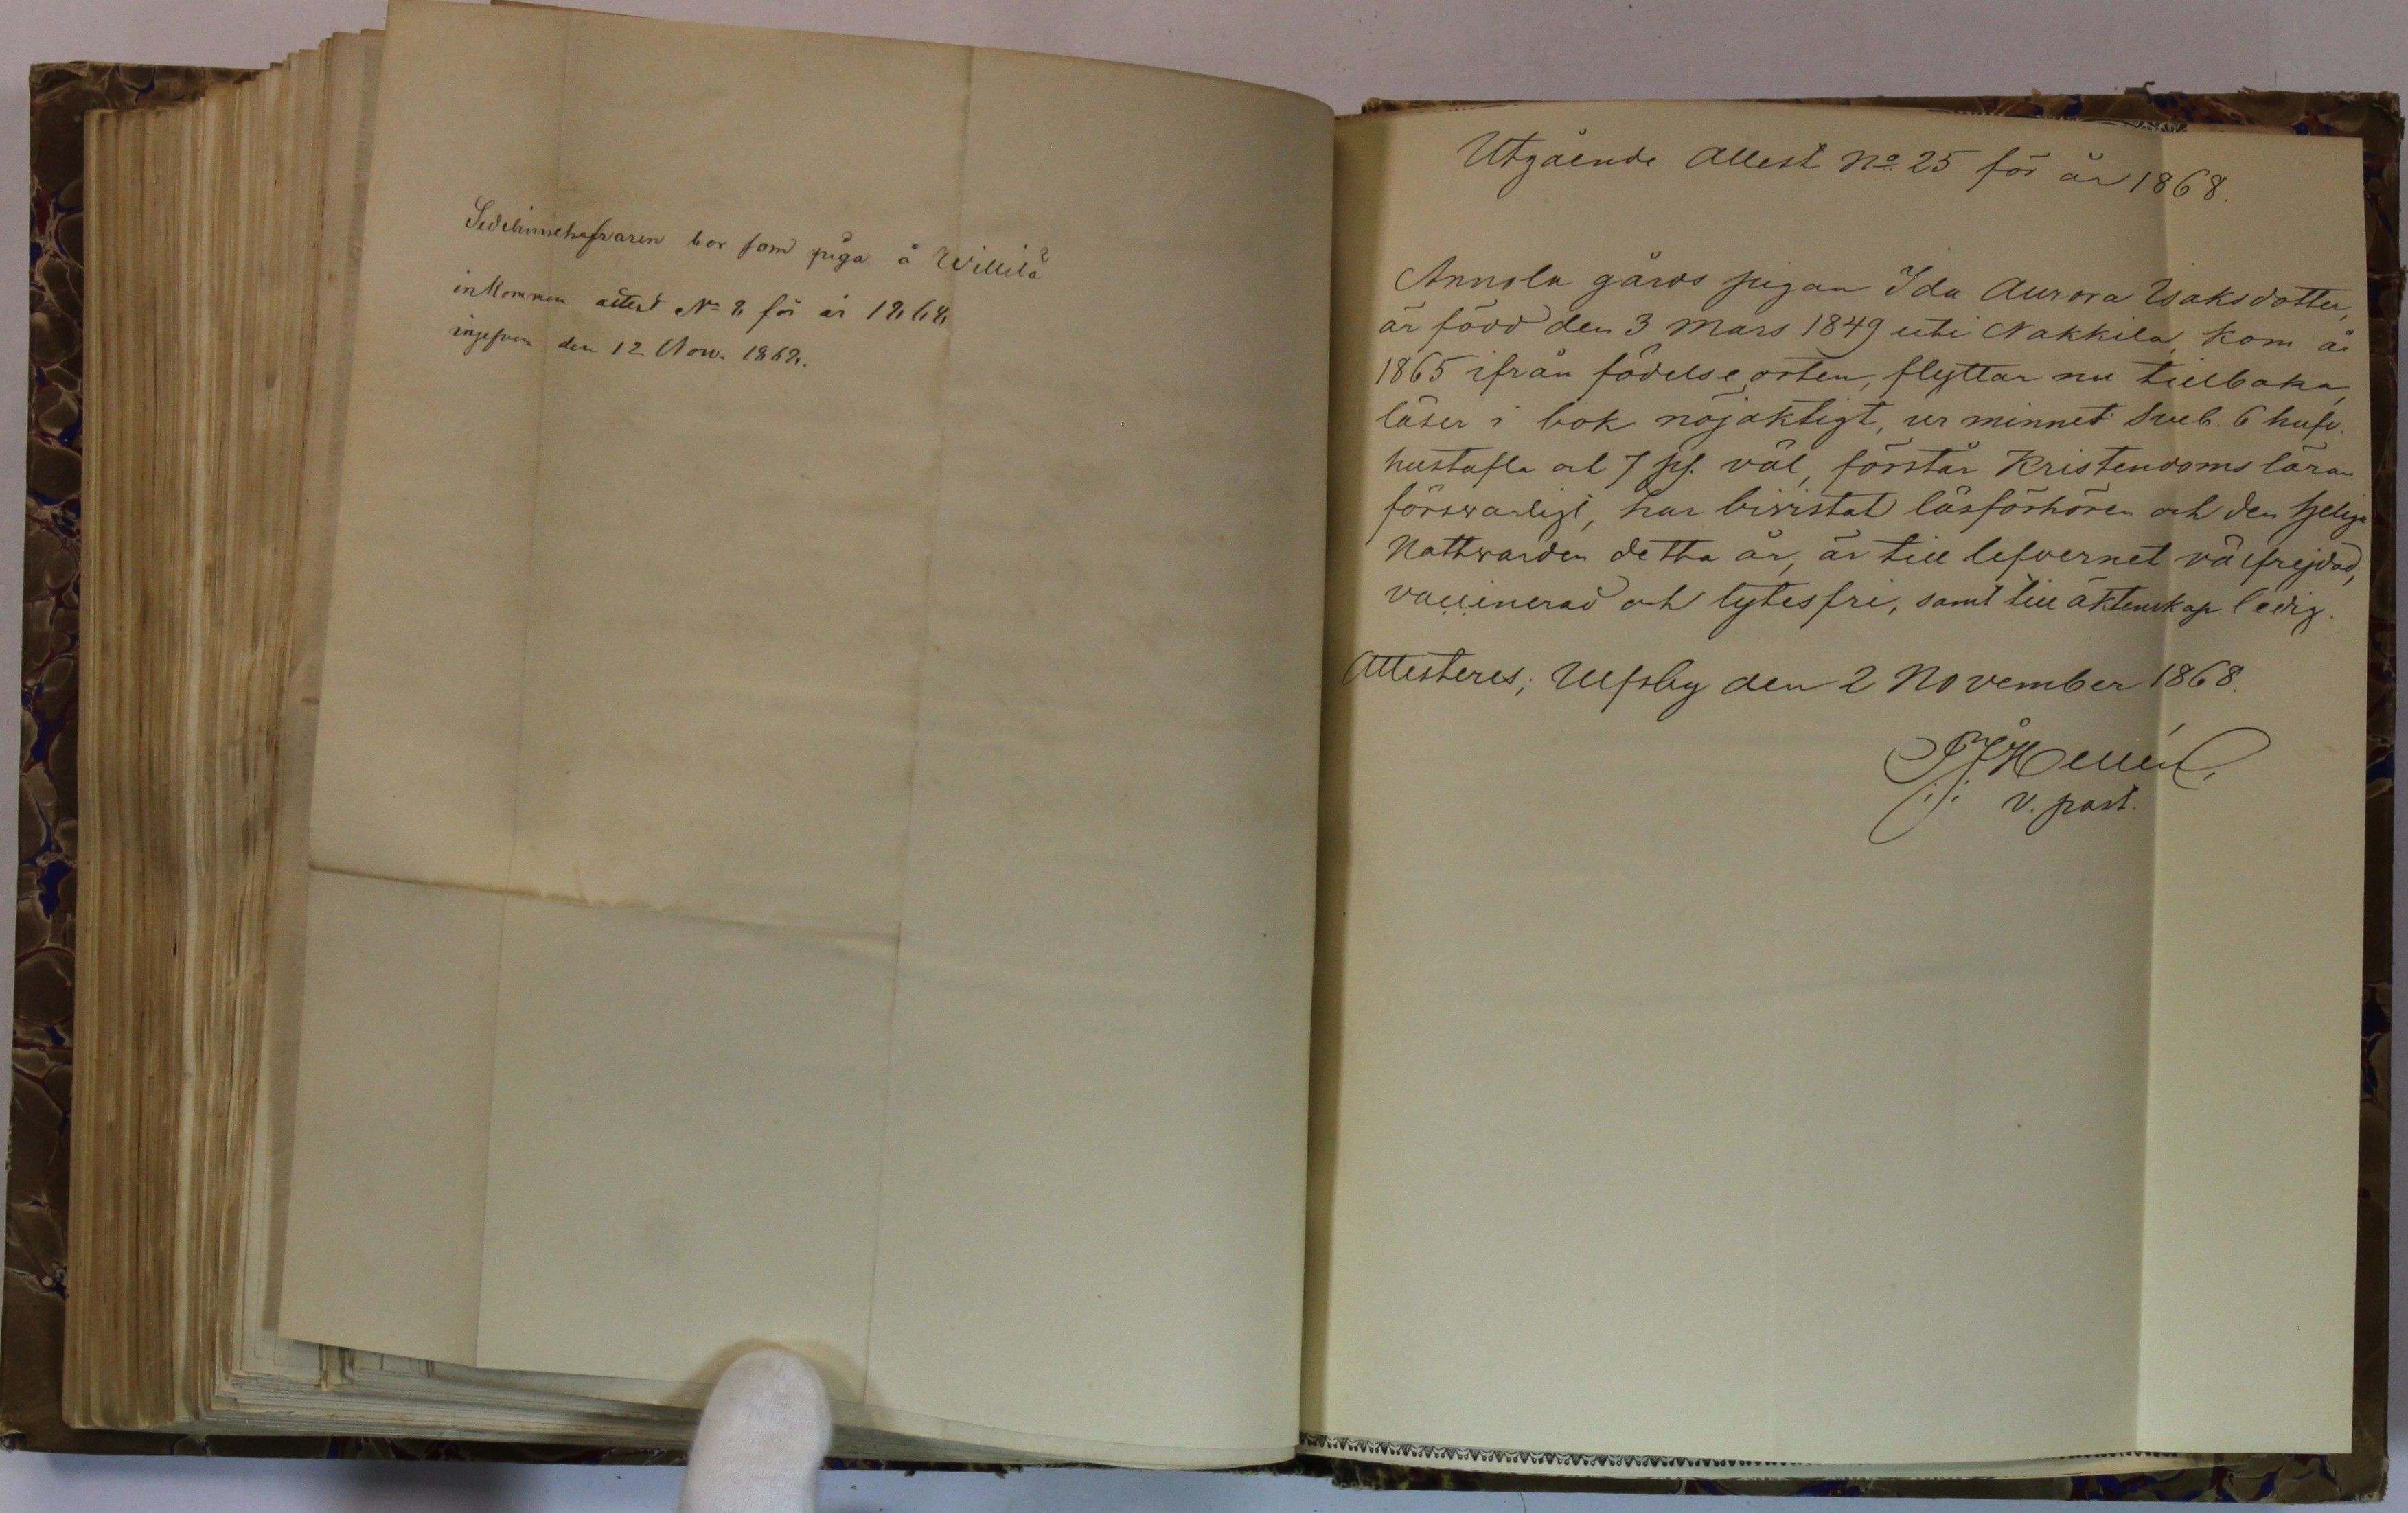 Sedelinnehafvaren bor som piga å Willilä
inkommen attest No 8 för år 1868
ingifven den 12 Nov. 1868.
Utgående Attest No 25 för år 1868.
Annola gårds pigan Ida Aurora Isaksdotter,
är född den 3 Mars 1849 uti Nakkila, kom år
1865 ifrån födelse orten, flyttar nu tillbaka,
läser i bok nöjaktigt, ur minnet Sveb. 6 hufv.
hustafla och 7 ps. väl, förstår Kristendoms läran
försvarligt, har bivistat läsförhören och den heliga
Nattvarden detta år, är till lefvernet välfrejdad,
vaccinerad och lytesfri, samt till äktenskap ledig.
Attesteres; Ulfsby den 2 November 1868.
v. past.